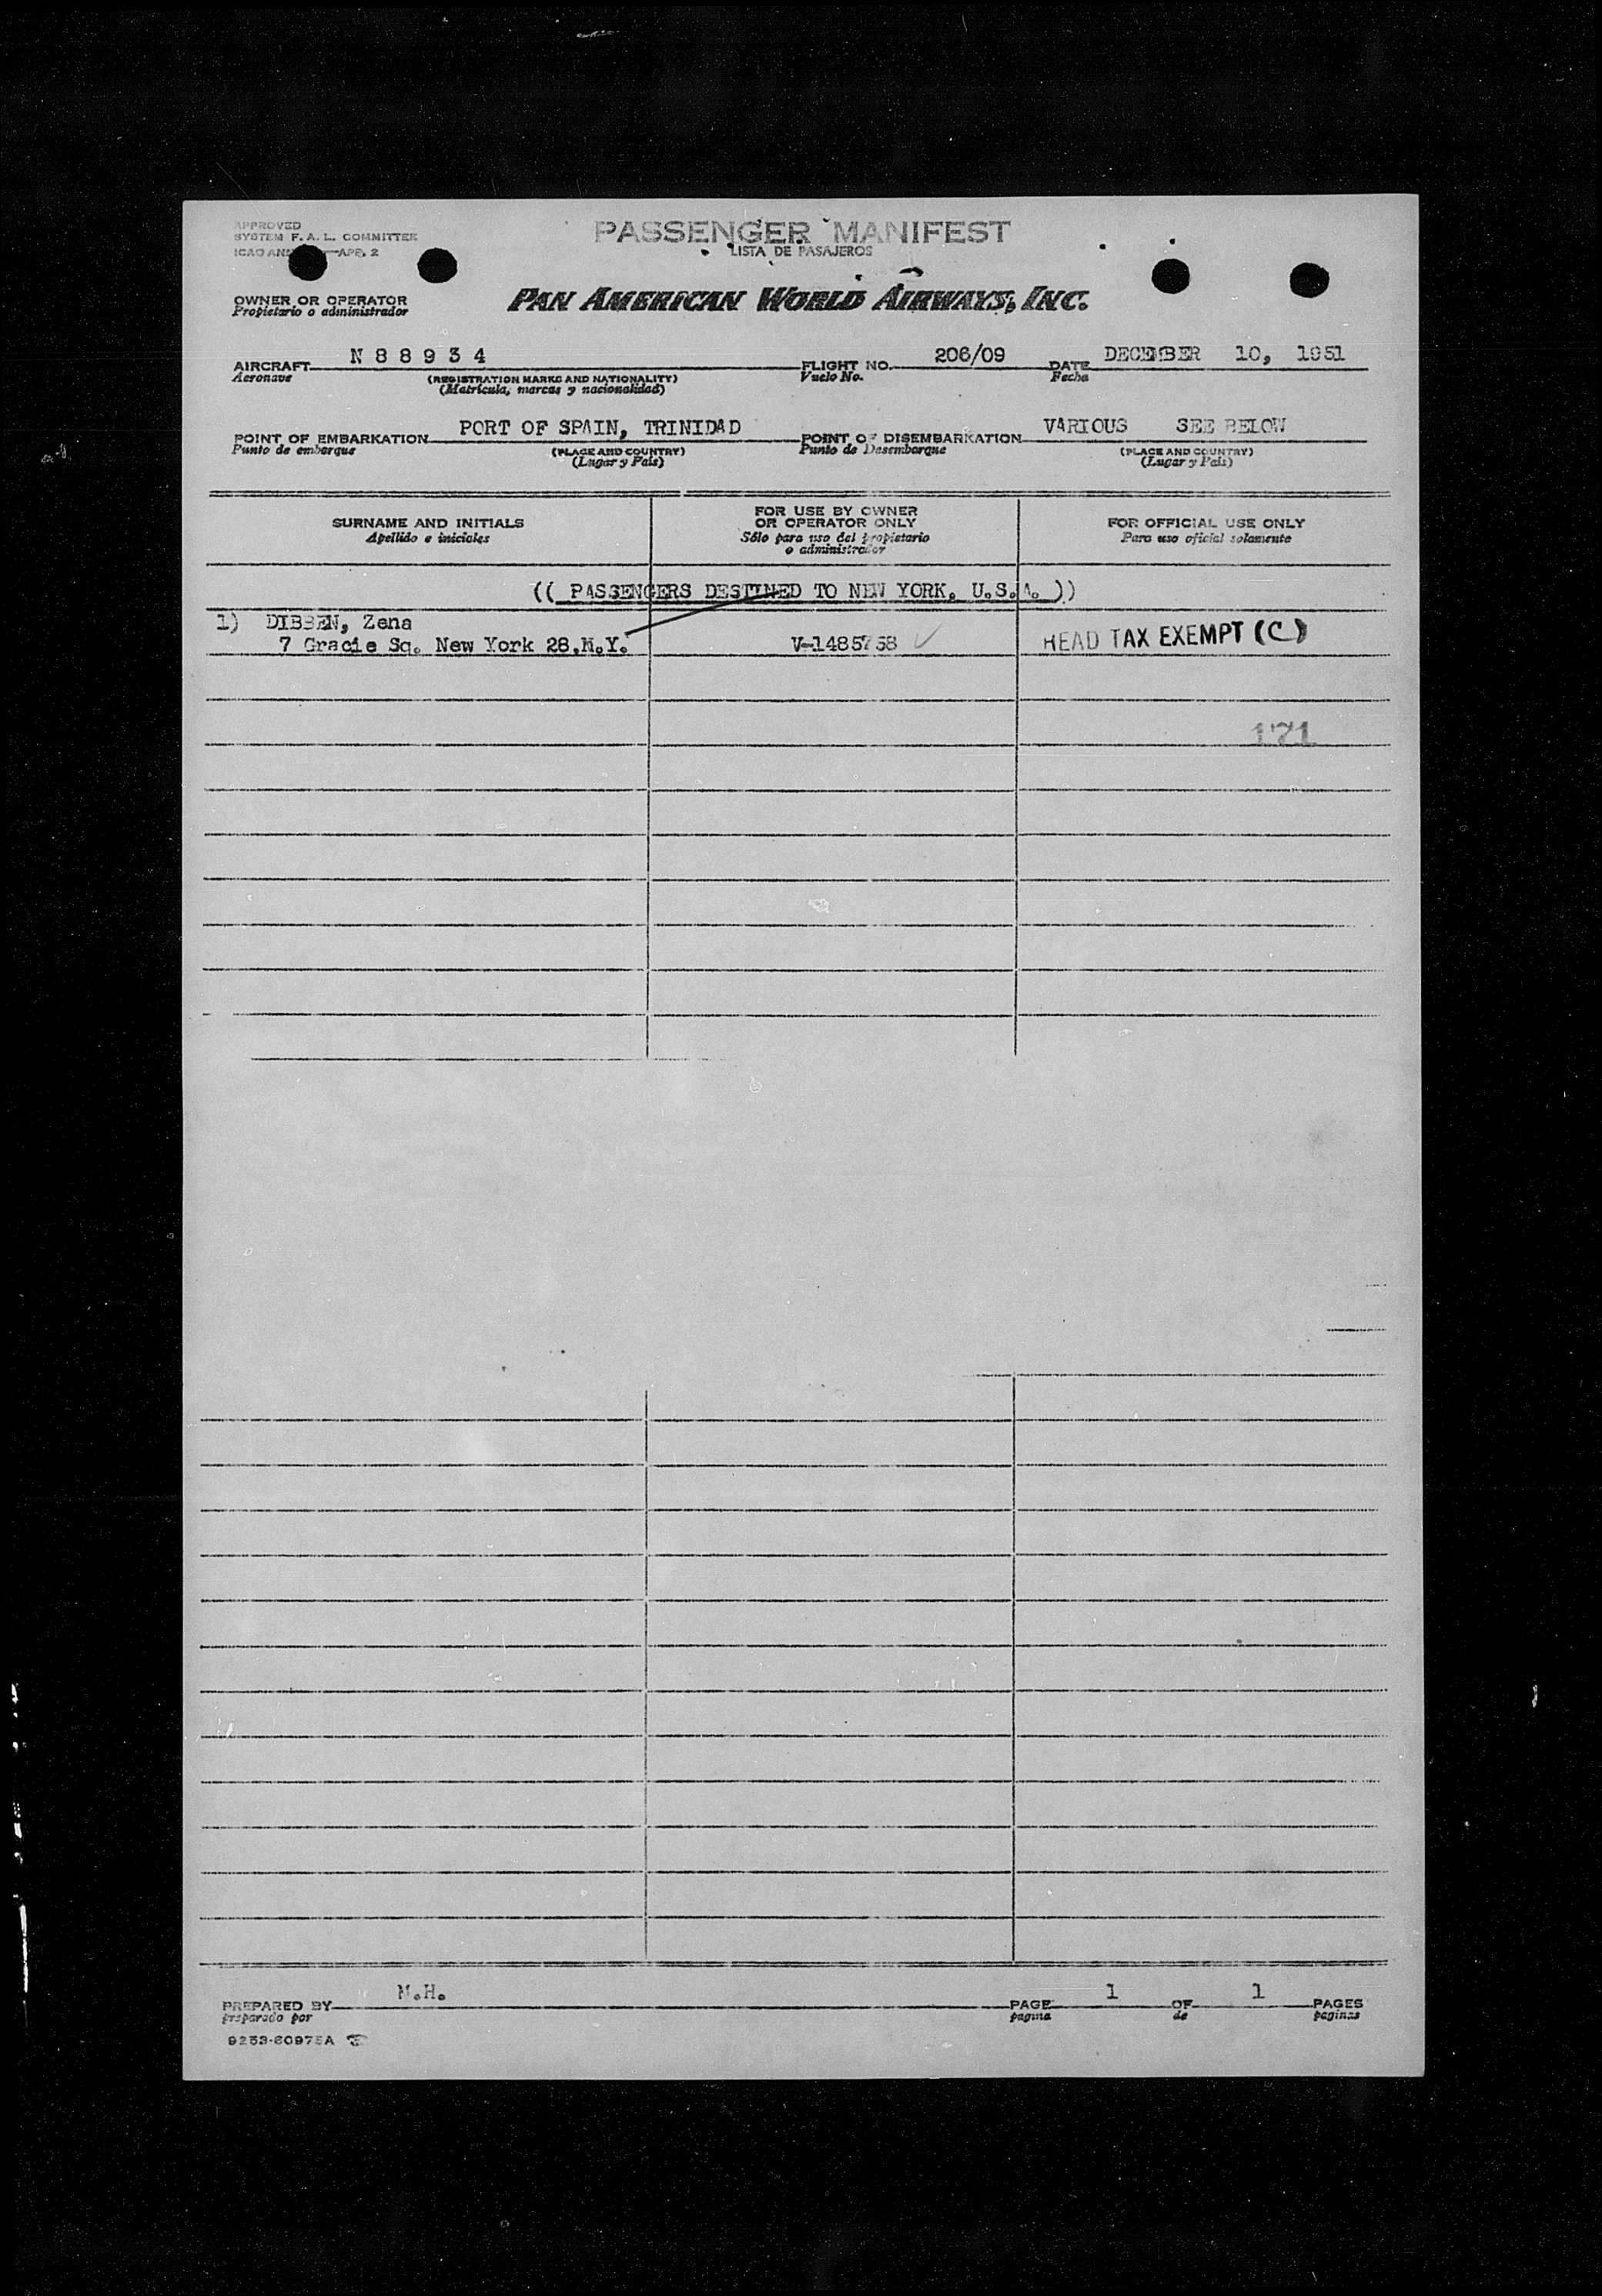 APPROVED
SYSTEM F. A. L. COMMITTEE
ICAO APP. 2
PASSENGER MANIFEST
LISTA DE PASAJEROS
OWNER OR OPERATOR
Propietario o administrador
PAN AMERICAN WORLD AIRWAYS, INC.
AIRCRAFT N 8 8 9 3 4 FLIGHT NO. 206/09 DATE DECEMBER 10, 1951
Aeronave (REGISTRATION MARKS AND NATIONALITY) Vuelo No. Fecha
(Matrícula, marcas y nacionalidad)
POINT OF EMBARKATION PORT OF SPAIN, TRINIDAD POINT OF DISEMBARKATION VARIOUS SEE BELOW
Punto de embarque (PLACE AND COUNTRY) Punto de Desembarque (PLACE AND COUNTRY)
(Lugar y País) (Lugar y País)
SURNAME AND INITIALS
Apellido e iniciales
FOR USE BY OWNER
OR OPERATOR ONLY
Sólo para uso del propietario
o administrador
FOR OFFICIAL USE ONLY
Para uso oficial solamente
(( PASSENGERS DESTINED TO NEW YORK. U.S.A. ))
1) DIBBEN, Zena
7 Gracie Sq. New York 28,N.Y. V-1485758 HEAD TAX EXEMPT (C)
171
PREPARED BY M.H. PAGE 1 OF 1 PAGES
preparado por pagina de paginas